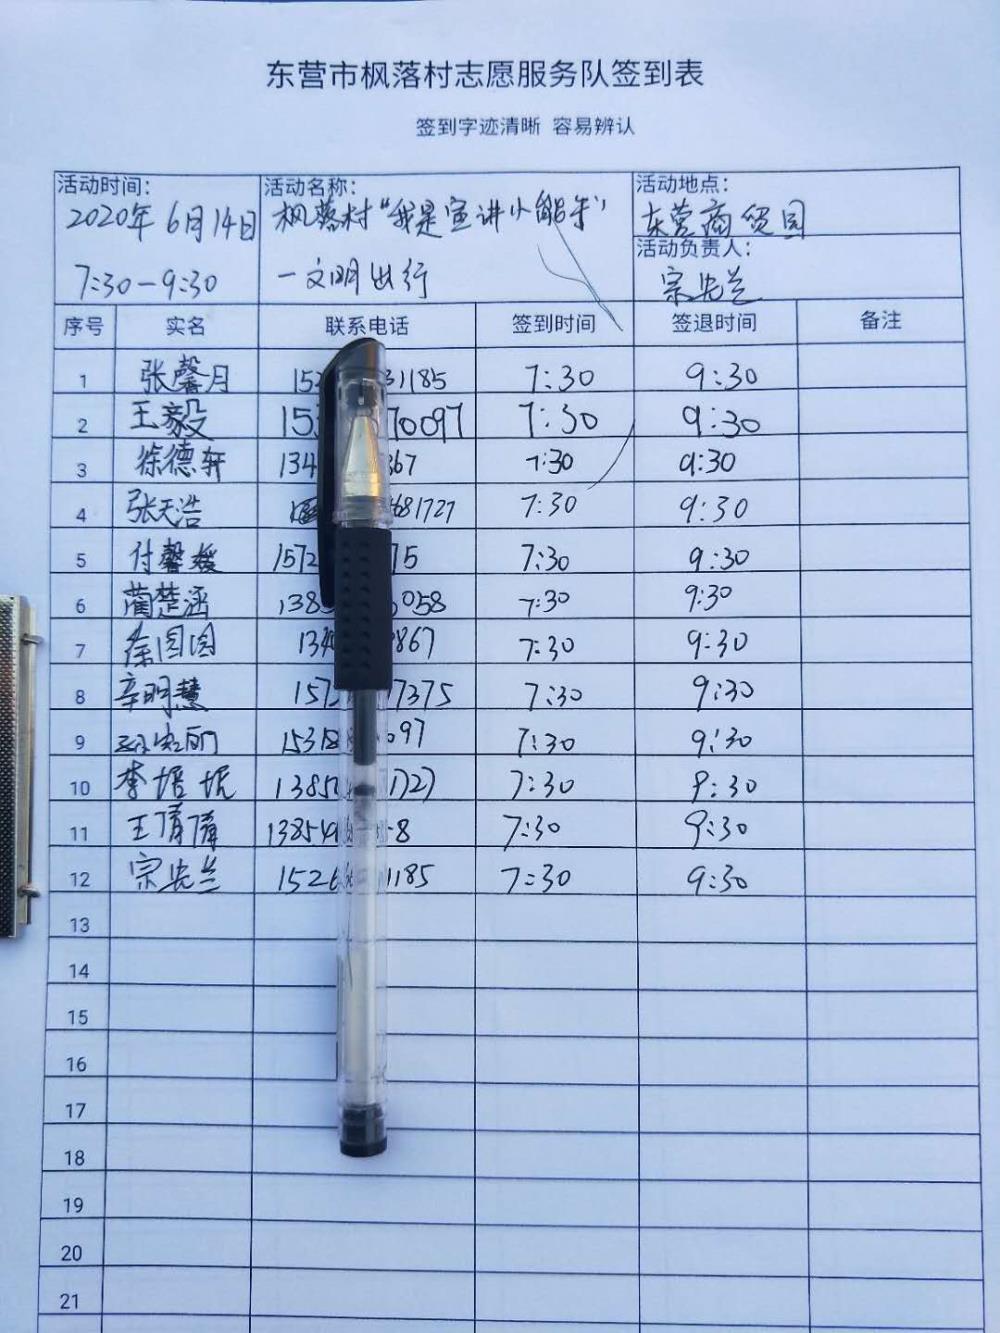 东营市枫落村志愿服务队签到表
签到字迹清晰 容易辨认
活动时间：
2020年6月14日
7:30-9:30
活动名称：
枫落村“我是宣讲小能手”
—文明出行
活动地点：
东营商贸园
活动负责人：
宗先兰
序号 实名 联系电话 签到时间 签退时间 备注
1 张馨月 152 31185 7:30 9:30
2 王毅 153 70097 7:30 9:30
3 徐德轩 134 867 7:30 9:30
4 张天浩 681727 7:30 9:30
5 付馨媛 1572 75 7:30 9:30
6 蔺楚涵 1385 058 7:30 9:30
7 徐圆圆 134 867 7:30 9:30
8 辛明慧 157 7375 7:30 9:30
9 1531 097 7:30 9:30
10 李培培 1385 1727 7:30 9:30
11 王倩倩 13854 58 7:30 9:30
12 宗先兰 1526 1185 7:30 9:30
13
14
15
16
17
18
19
20
21